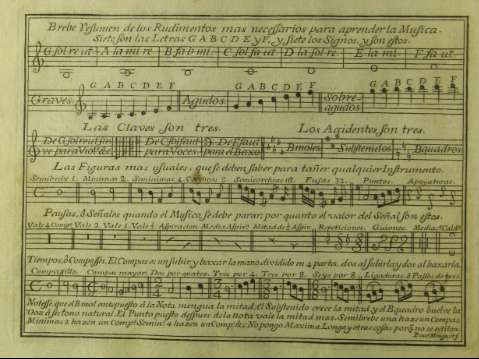 Brebe Resumen de los Rudimentos mas necessarios para aprender la Musica.
Siete son las Letras G A B C D E y F, y siete los Signos, y son estos.
G sol re ut A la mi re B fa b mi C sol fa ut D la sol re E la mi F fa ut
G A B C D E F G A B C D E F G A B C D E F
Graves Agudos Sobre-
agudos
Las Claves son tres. Los Accidentes son tres.
De G sol re ut sir De C sol faut De F faut
ve para Viol.&c. para Voces para el Baxo Bmoles Sustenidos Bquadros
Las Figuras mas usuales, que se deben saber para tañer qualquier Instrumento.
Semibrebe 1. Minimas 2. Seminimas 4. Corcheas 8. Semicorcheas 16. Fusas 32. Puntos. Apoyaturas.
Pausas, ò Señales quando el Musico se debe parar: por quanto el valor del Señal son estos.
Vale 4 Comp. Vale 2. Vale 1. Vale ½ Aspiracion Media Aspir. Mitad de ½ Aspir. Repeticiones. Guiones.
Tiempos, ò Compasses. El Compas es un subir y baxar la mano dividido en 4 parta, dos al subirla y dos al baxarla.
Compasillo. Compas mayor. Dos por quatro. Tres por 4. Tres por 8. Seys por 8. Ligaduras
Notesse, que el Bmol antepuesto à la Nota mengua la mitad, El Sustenido crece la mitad, y el Bquadro buelve la
Voz à su tono natural. El Punto puesto despues de la nota vale la mitad mas. Semibrebe una haze un Compas
Minimas 2 hazen un Comp. Semini. 4 hazen un Comp. &c. No pongo Maxima Longa y otras cosas porq̃ no se estilan.